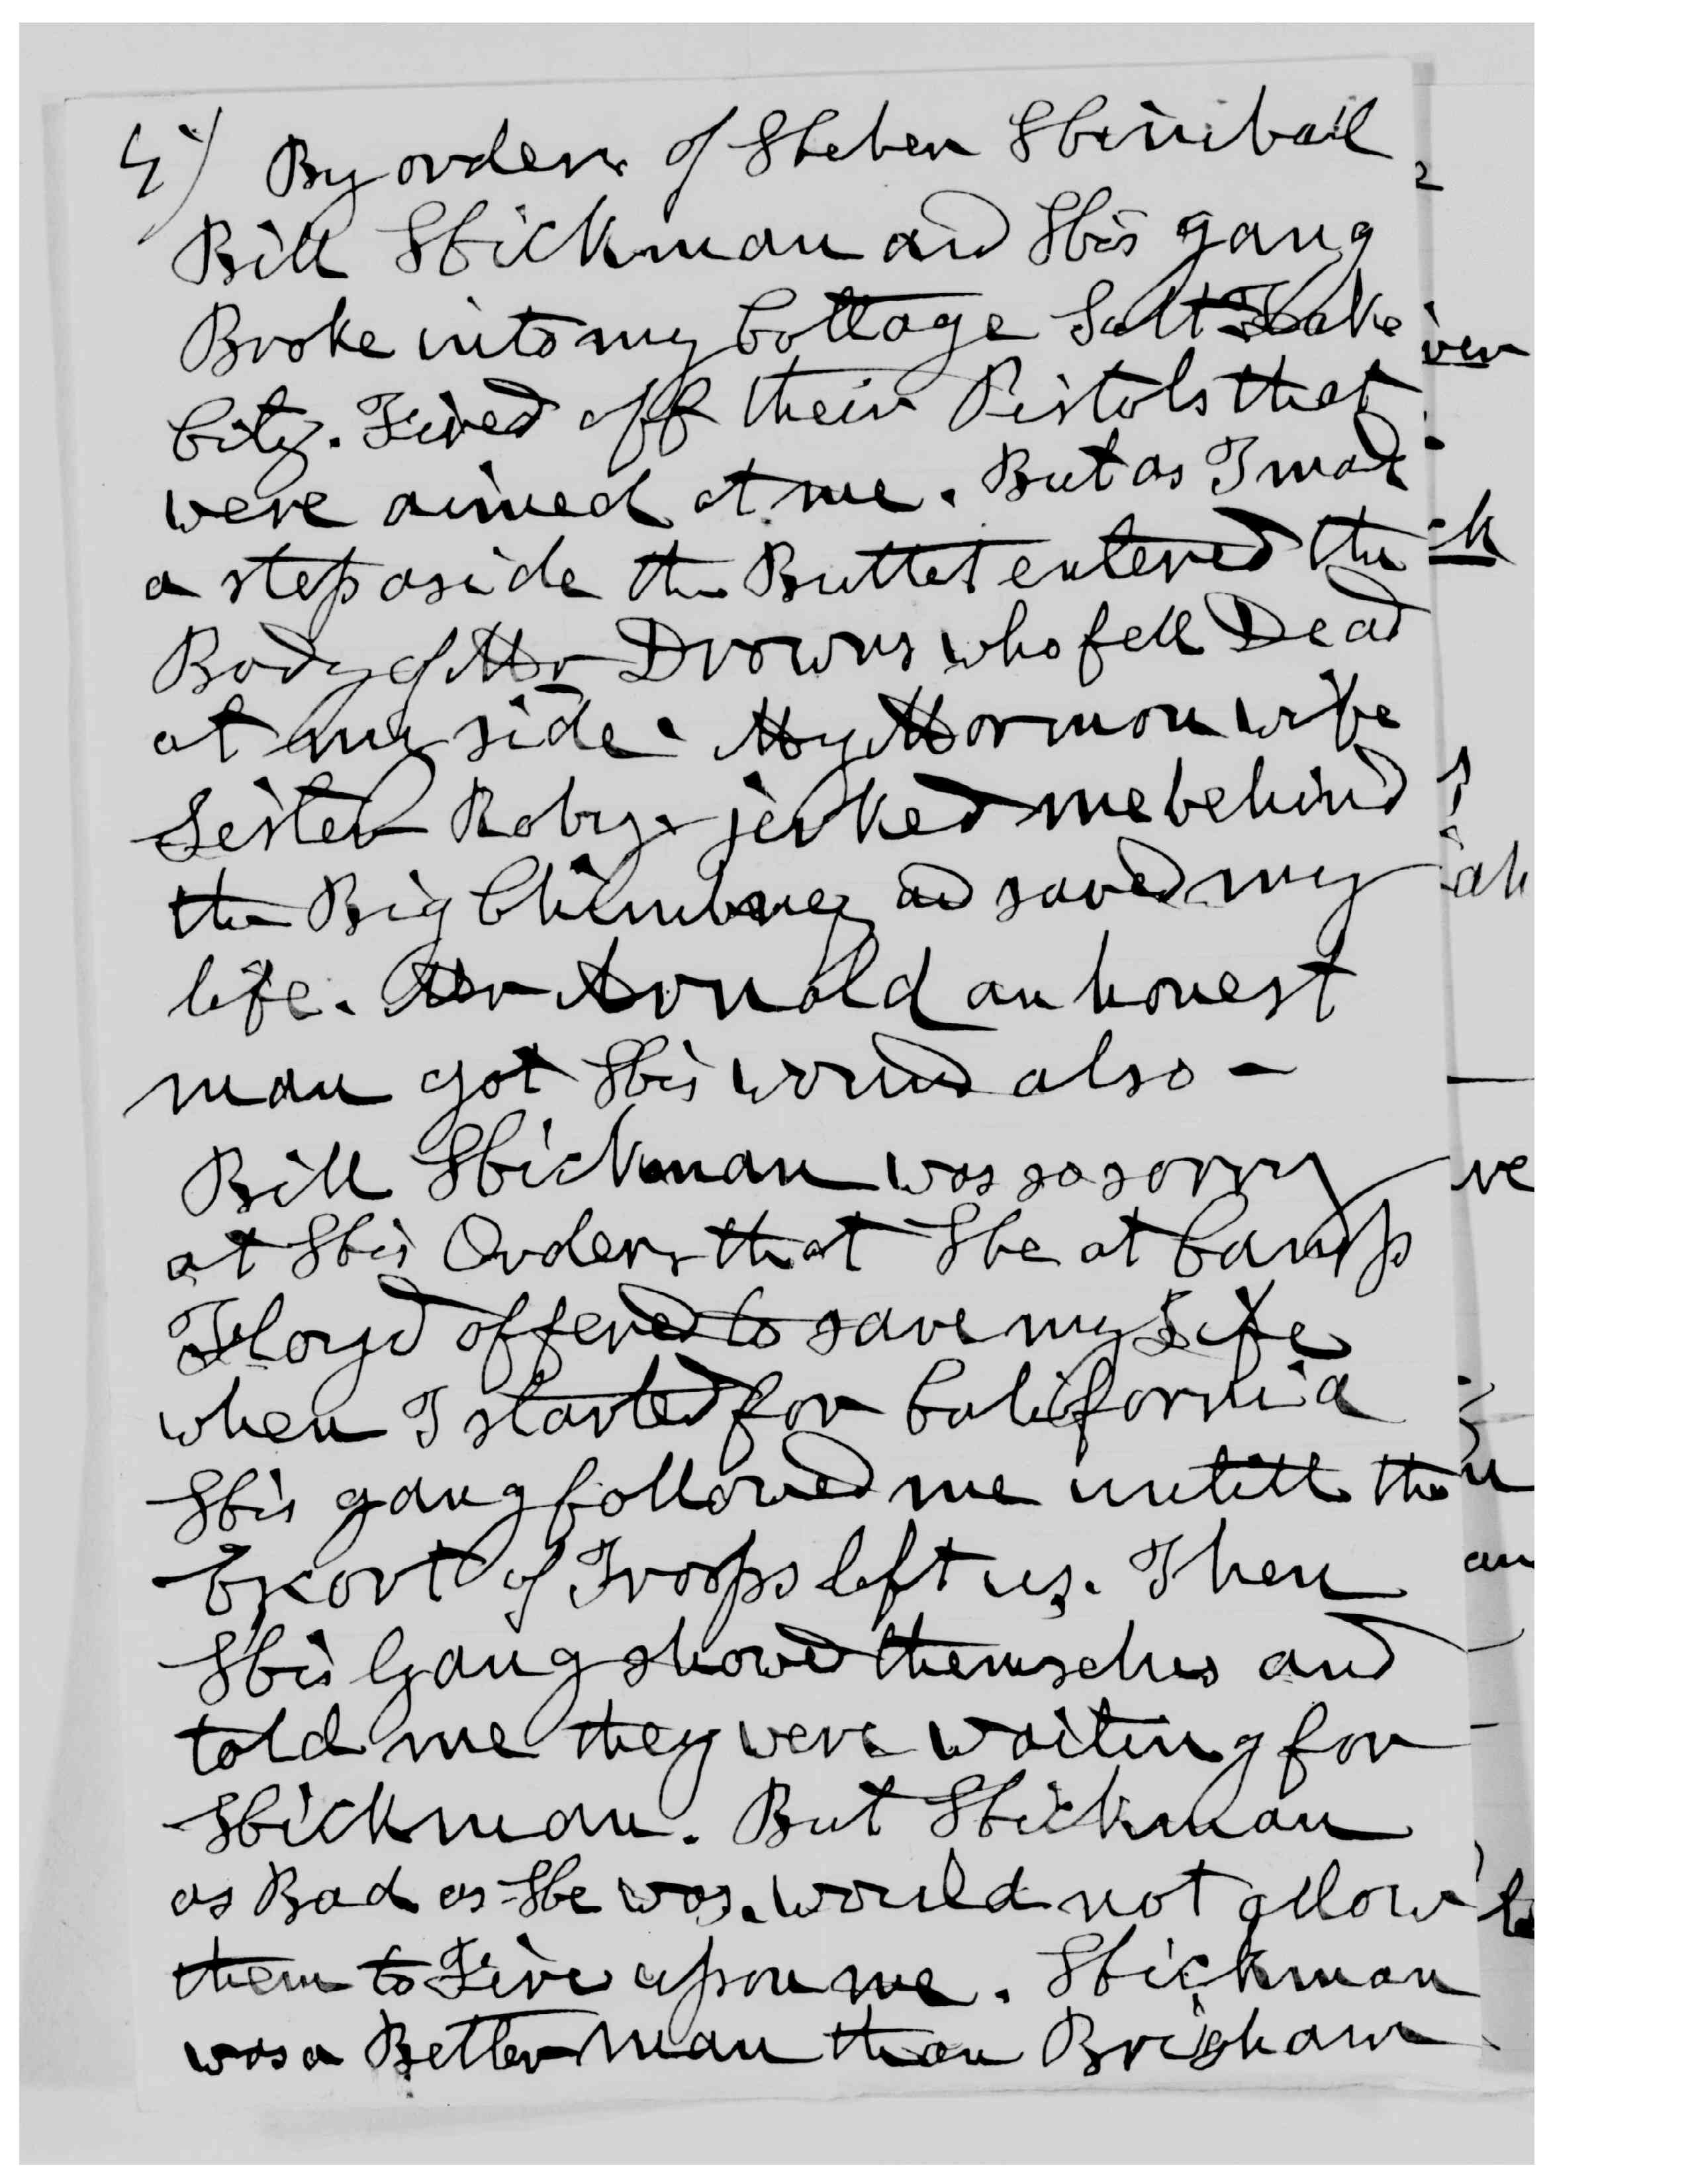 4) By orders of Heber Himball
Bill Hickman and His gang
Broke into my Cottage Salt Lake
City. Fired off their Pistols that
were aimed at me. But as I mad
a step aside the Bullet entered the
Body of Mr Drowns who fell Dead
at my side. My Mormon wife
Sister Roby. jerked me behind
the Big Chimney ad saved my
life. Mr Arnold an honest
man got His wound also —
Bill Hickman was so sorry
at His Orders that He at Camp
Floyd offered to save my Life
when I started for California
His gang followed me untill the
Escort of Troops left us. Then
His Gang showed themselves and
told me they were waiting for
Hickman. But Hickman
as Bad as He was. would not allow
them to Fire upon me. Hickman
was a Better Man than Brigham